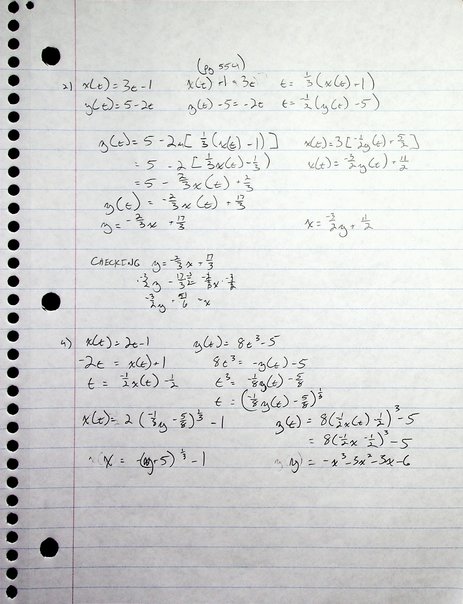 (pg 554)
2) x(t) = 3t - 1   x(t) + 1 = 3t   t = 1/3 (x(t) + 1)
y(t) = 5 - 2t   y(t) - 5 = -2t   t = -1/2 (y(t) - 5)
y(t) = 5 - 2[ 1/3 (x(t) - 1) ]   x(t) = 3[ -1/2 y(t) + 5/2 ]
= 5 - 2[ 1/3 x(t) - 1/3 )   x(t) = -3/2 y(t) + 11/2
= 5 - 2/3 x(t) + 2/3
y(t) = -2/3 x(t) + 17/3
y = -2/3 x + 17/3   x = -3/2 y + 11/2
CHECKING y = -2/3 x + 17/3
4) x(t) = 2t - 1   y(t) = 8t³ - 5
-2t = x(t) + 1   8t³ = -y(t) - 5
t = -1/2 x(t) - 1/2   t³ = -1/8 y(t) - 5/8
t = (-1/8 y(t) - 5/8)^1/3
x(t) = 2 (-1/8 y - 5/8)^1/3 - 1   y(t) = 8(-1/2 x(t) - 1/2)³ - 5
= 8(-1/2 x - 1/2)³ - 5
x = -(y+5)^1/3 - 1   y = -x³ - 3x² - 3x - 6